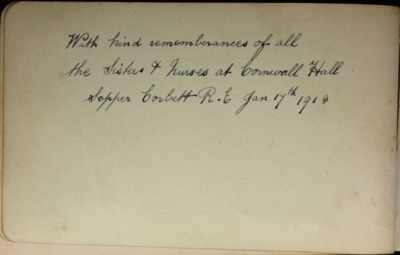 With kind rememberances of all
the Sisters & Nurses at Cornwall Hall
Sapper Corbett R.E Jan 17th 1918